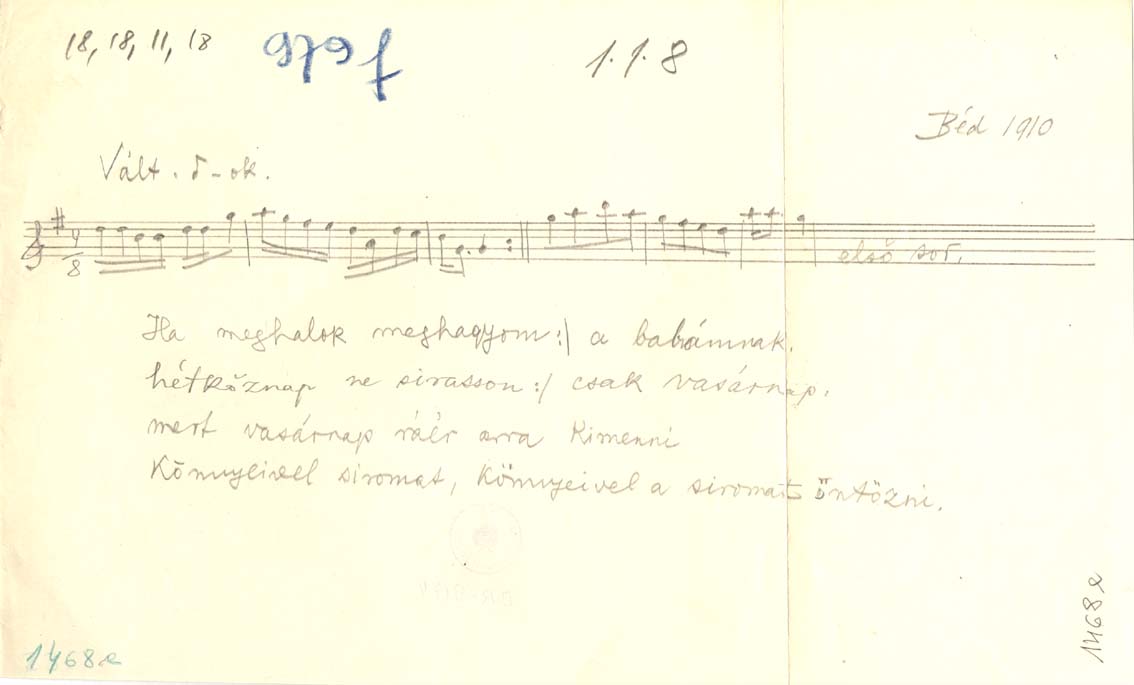 18, 18, 11, 18
1.1.8
Béd 1910
Vált. 5-ok.
4
8
első sor.
Ha meghalok meghagyom :| a babámnak.
hétköznap ne sirasson :/ csak vasárnap.
mert vasárnap ráér arra kimenni
Könnyeivel siromat, könnyeivel a siromat öntözni.
1468e
1468e